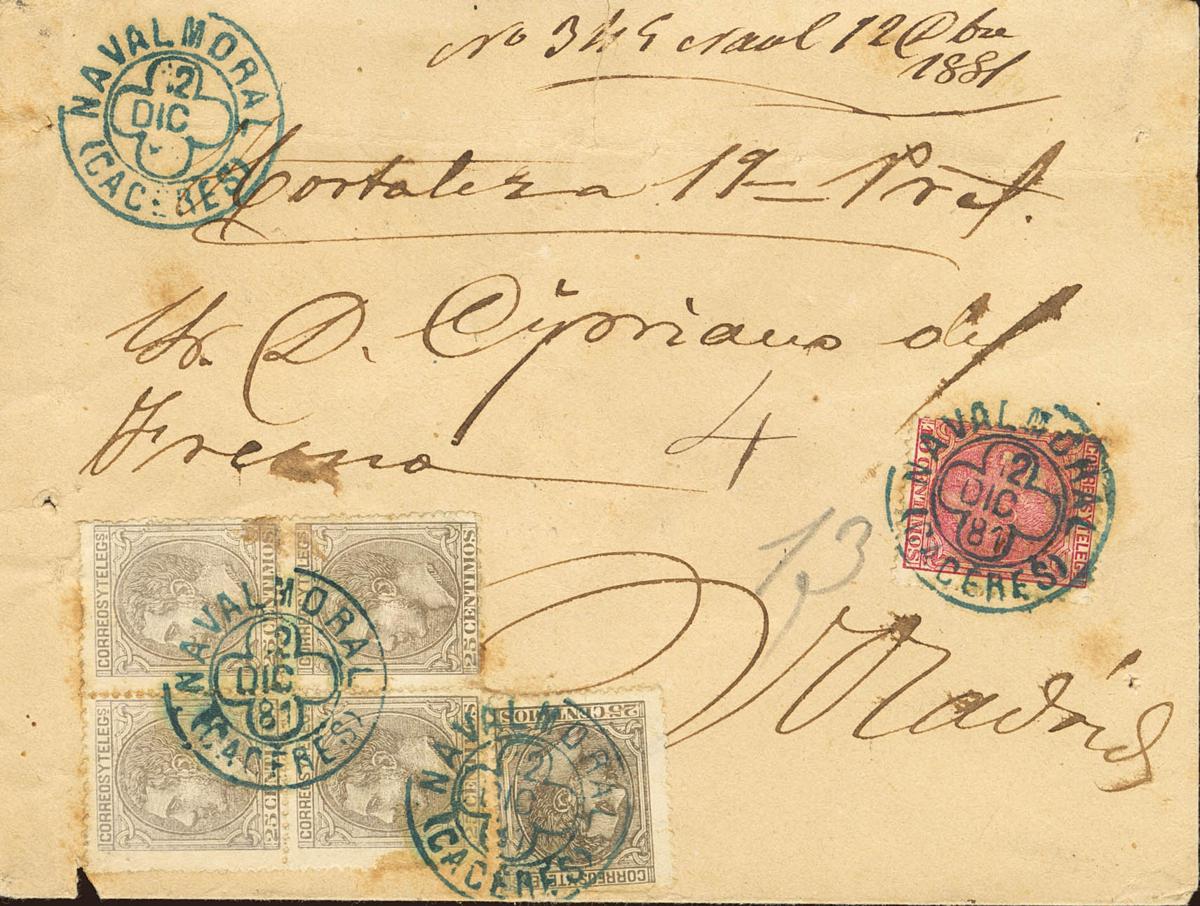 NAVALMORAL
12
DIC
(CACERES)
No 345 Naval 12 Dbre
1881
Hortaleza 19 - Pral.
Sr. D. Cypriano del
Fresno
4
13
Madrid
NAVALMORAL
12
DIC
81
(CACERES)
CORREOS Y TELEGS
CENTIMOS DE
CORREOS Y TELEGS
25 CENTIMOS
CORREOS Y TELEGS
25 CENTIMOS
NAVALMORAL
12
DIC
81
(CACERES)
CORREOS Y TELEGS
25 CENTIMOS
CORREOS Y TELEGS
25 CENTIMOS
CORREOS Y TELEGS
NAVALMORAL
12
DIC
(CACERES)